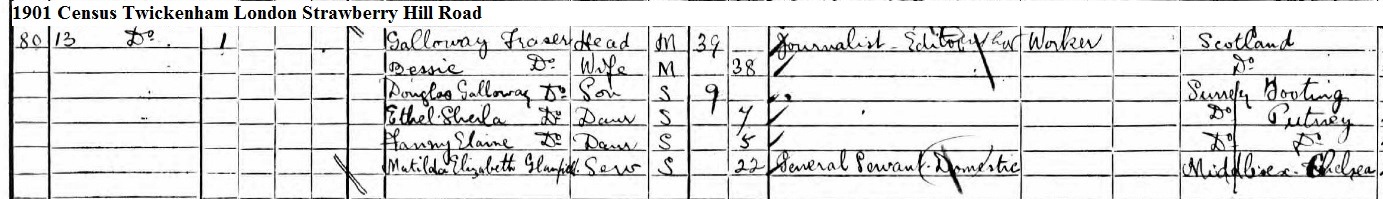 1901 Census Twickenham London Strawberry Hill Road
80 13 Do 1 Galloway Fraser Head M 39 Journalist - Editor Worker Scotland
Bessie Do Wife M 38 Do
Douglas Galloway Do Son S 9 Surrey Tooting
Ethel Sheila Do Daur S 7 Do Putney
Fanny Elaine Do Daur S 5 Do Do
Matilda Elizabeth Serv S 22 General Servant - Domestic Middlesex - Chelsea